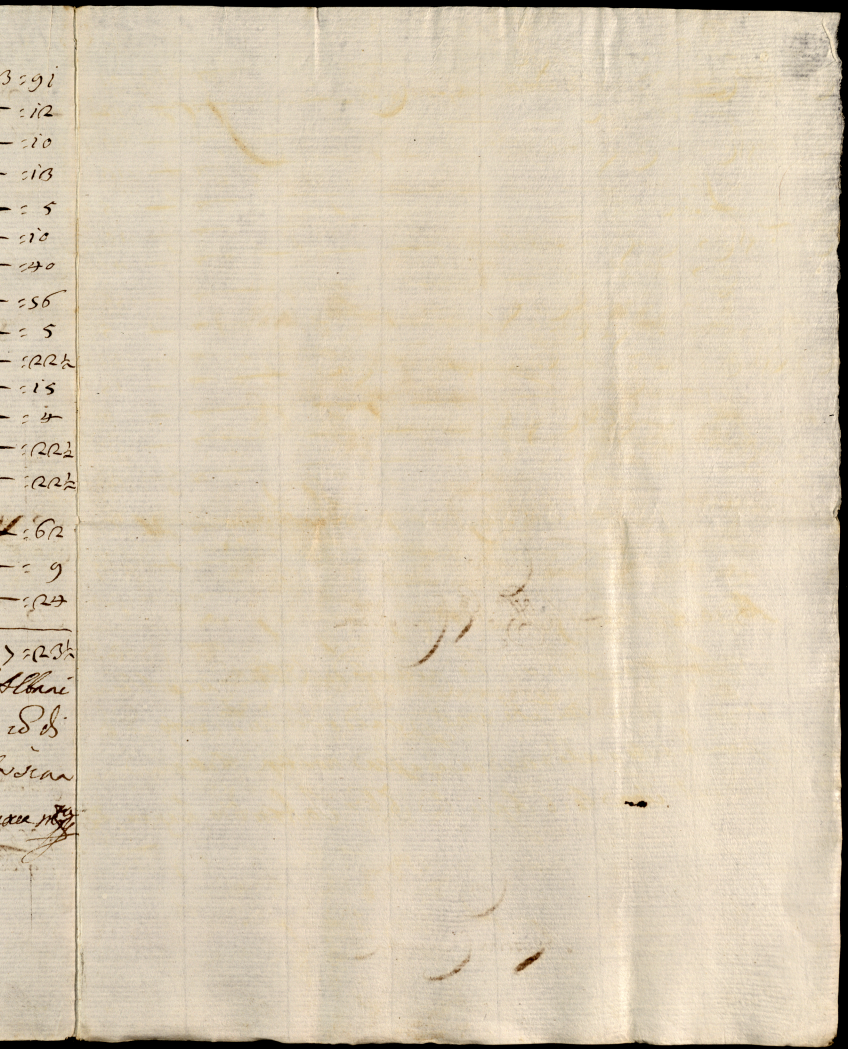 3 : 91
— : 12
— : 10
— : 13
— : 5
— : 10
— : 40
— : 56
— : 5
— : 22½
— : 15
— : 4
— : 22½
— : 22½
— : 62
— : 9
— : 24
7 : 23½
Albani
di